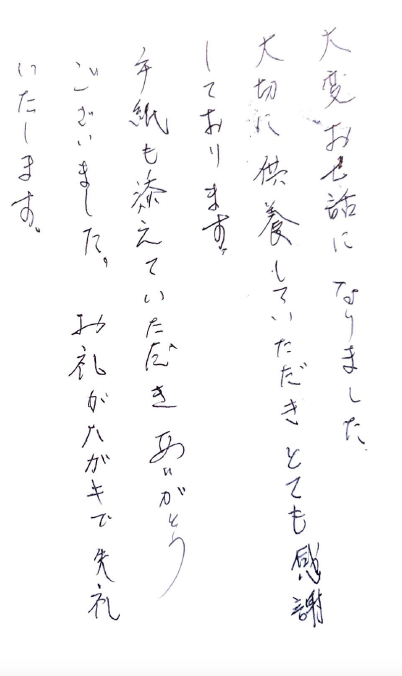 大変お世話になりました。
大切に供養していただきとても感謝
しております。
手紙も添えていただき ありがとう
ございました。 お礼がハガキで失礼
いたします。